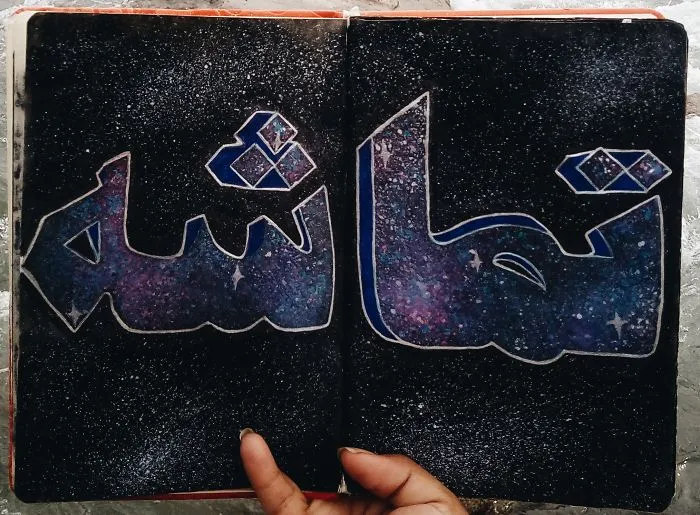 تماشہ